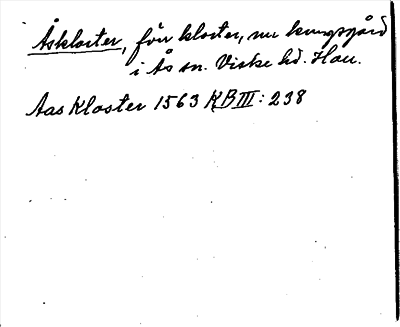 Åskloster, förr kloster, nu kungsgård
i Ås sn. Viske hd. Hall.
Aas Kloster 1563 KB III: 238